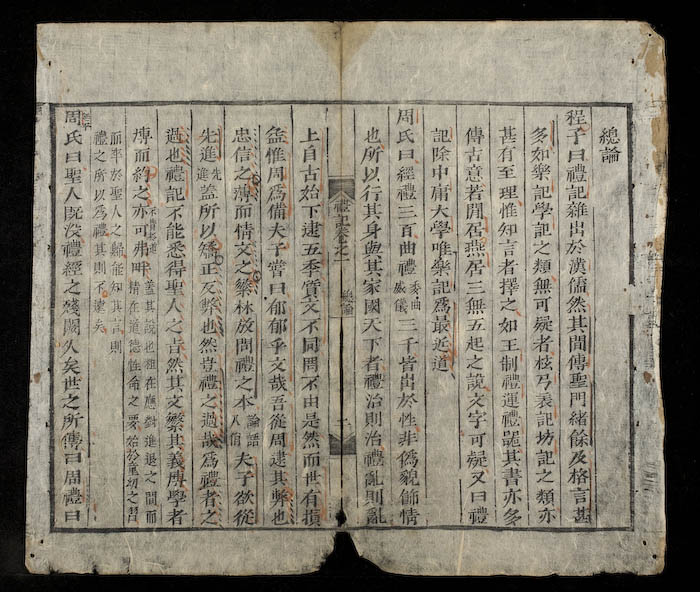 總論
程子曰禮記雜出於漢儒然其間傳聖門緒餘及格言甚
多如樂記學記之類無可疑者檀弓表記坊記之類亦
甚有至理惟知言者擇之如王制禮運禮器其書亦多
傳古意若閒居燕居三無五起之說文字可疑又曰禮
記除中庸大學唯樂記爲最近道
周氏曰經禮三百曲禮委曲威儀三千皆出於性非僞貌飾情
也所以行其身與其家國天下者禮治則治禮亂則亂
禮記卷之一 總論 一
上自古始下逮五季質文不同罔不由是然而世有損
益惟周爲備夫子嘗曰郁郁乎文哉吾從周逮其弊也
忠信之薄而情文之繁林放問禮之本論語八佾夫子欲從
先進先進蓋所以矯正反弊也然豈禮之過哉爲禮者之
過也禮記不能悉得聖人之旨然其文繁其義博學者
博而約之亦可弗畔蓋其說也粗在應對進退之間而精在道德性命之要始於童幼之習
而卒於聖人之歸能知其言則禮之所以爲禮其則不遠矣
周氏曰聖人既沒禮經之殘闕久矣世之所傳曰周禮曰